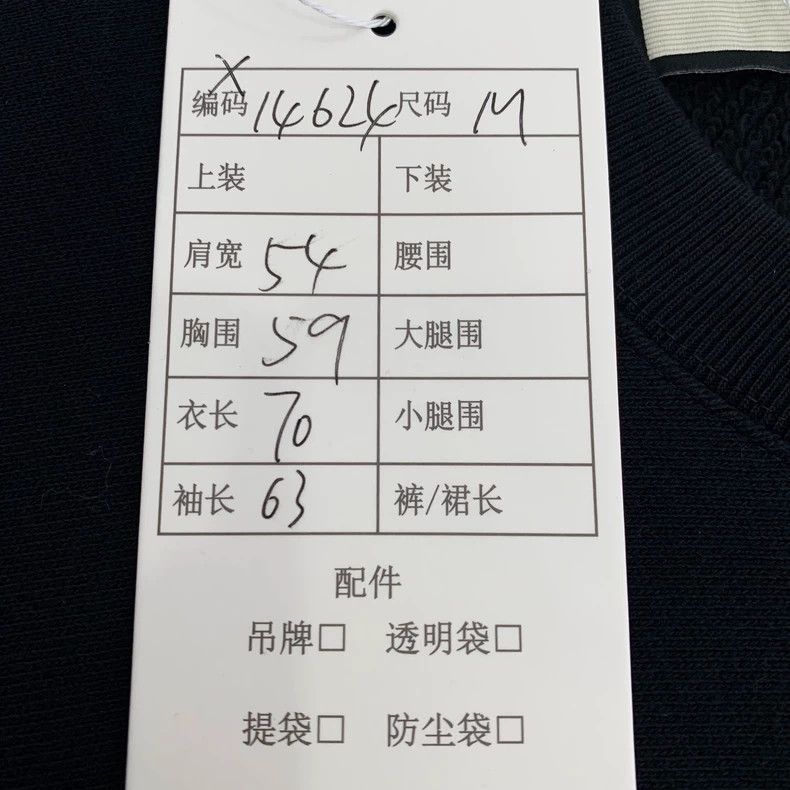 X
编码 14624 尺码 M
上装 下装
肩宽 54 腰围
胸围 59 大腿围
衣长 70 小腿围
袖长 63 裤/裙长
配件
吊牌□ 透明袋□
提袋□ 防尘袋□